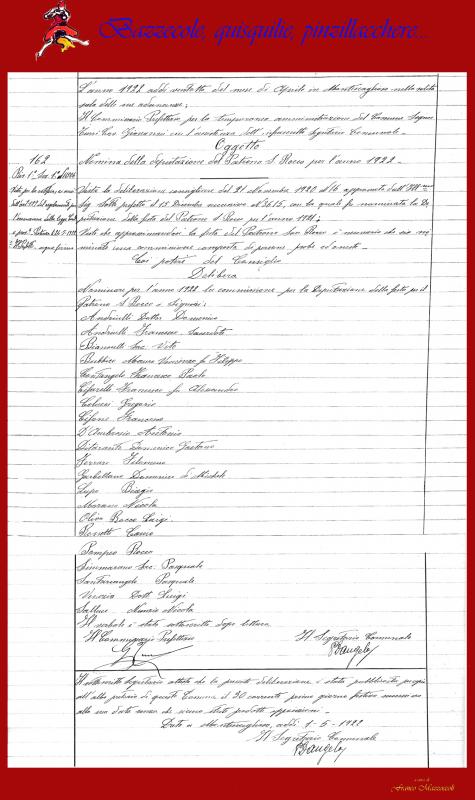 Bazzecole, quisquilie, pinzillacchere...
L'anno 1922 addì ventotto del mese di Aprile in Montescaglioso nella solita
sala delle sue adunanze;
Il Commissario Prefettizio per la temporanea amministrazione del Comune Signor
Cav. Giovanni con l'assistenza dell' Segretario Comunale.
Oggetto
162
Nomina della deputazione del Patrono S. Rocco per l'anno 1922.
Vista la deliberazione consigliare del 21 Novembre 1920 N. 16 approvata dall'Ill.mo
Sig. Sotto prefetto il 15 Dicembre successivo al 3615, con la quale fu nominata la De
putazione della festa del Patrono S. Rocco per l'anno 1921;
Visto che approssimandosi la festa del Patrono San Rocco è necessario che sia no
minata una commissione composta di persone probe ed oneste.
Coi poteri del Consiglio
Delibera
Nominare per l'anno 1922 la commissione per la Deputazione della festa per il
Patrono S. Rocco i Signori:
Andriulli Dottor Domenico
Andriulli Francesco Sacerdote
Bianculli Sac. Vito
Bubbico Mauro Vincenzo fu Filippo
Contangelo Francesco Paolo
Cifarelli Francesco fu Alessandro
Colucci Gregorio
Cifone Francesco
D'Ambrosio Antonio
Ditaranto Domenico Gaetano
Ferraro Filomeno
Garbellano Domenico di Michele
Lupo Biagio
Morano Nicola
Oliva Rocco Luigi
Canio
Pompeo Rocco
Simmarano Sac. Pasquale
Santarcangelo Pasquale
Venezia Dott. Luigi
Nunzio Nicola
Il verbale è stato sottoscritto dopo lettura.
Il Commissario Prefettizio
Il Segretario Comunale
Il sottoscritto Segretario attesta che la presente deliberazione è stata pubblicata, copia
all'albo pretorio di questo Comune il 30 corrente primo giorno festivo successivo
alla sua data senza che siano state prodotte opposizioni.
Data a Montescaglioso, addì 1-5-1922
Il Segretario Comunale
a cura di
Franco Mazzoccoli